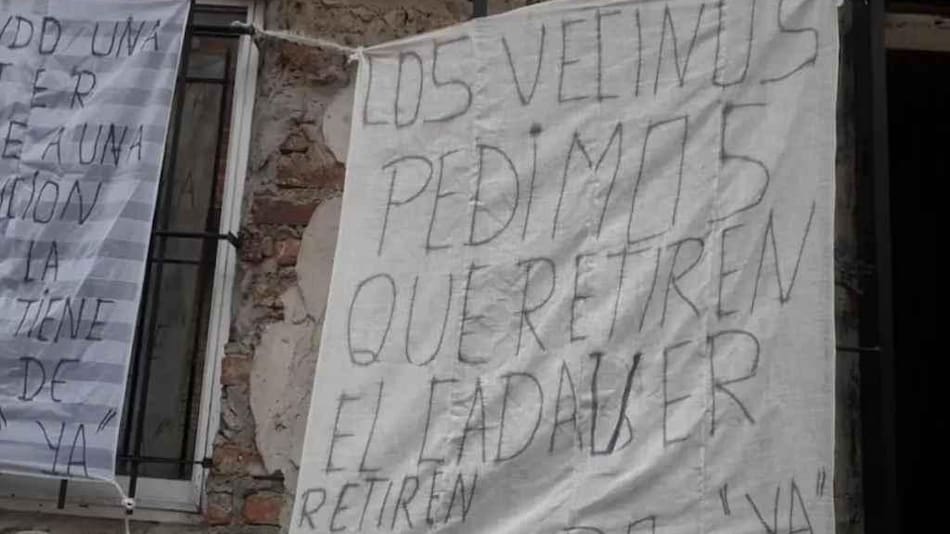 UNA
ER
E A UNA
CION
LA
TIENE
DE
"YA"
LOS VECINOS
PEDIMOS
QUE RETIREN
EL CADAVER
RETIREN
"YA"